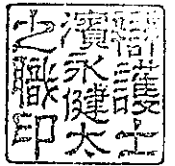 辯護士
濱永健太
之職印